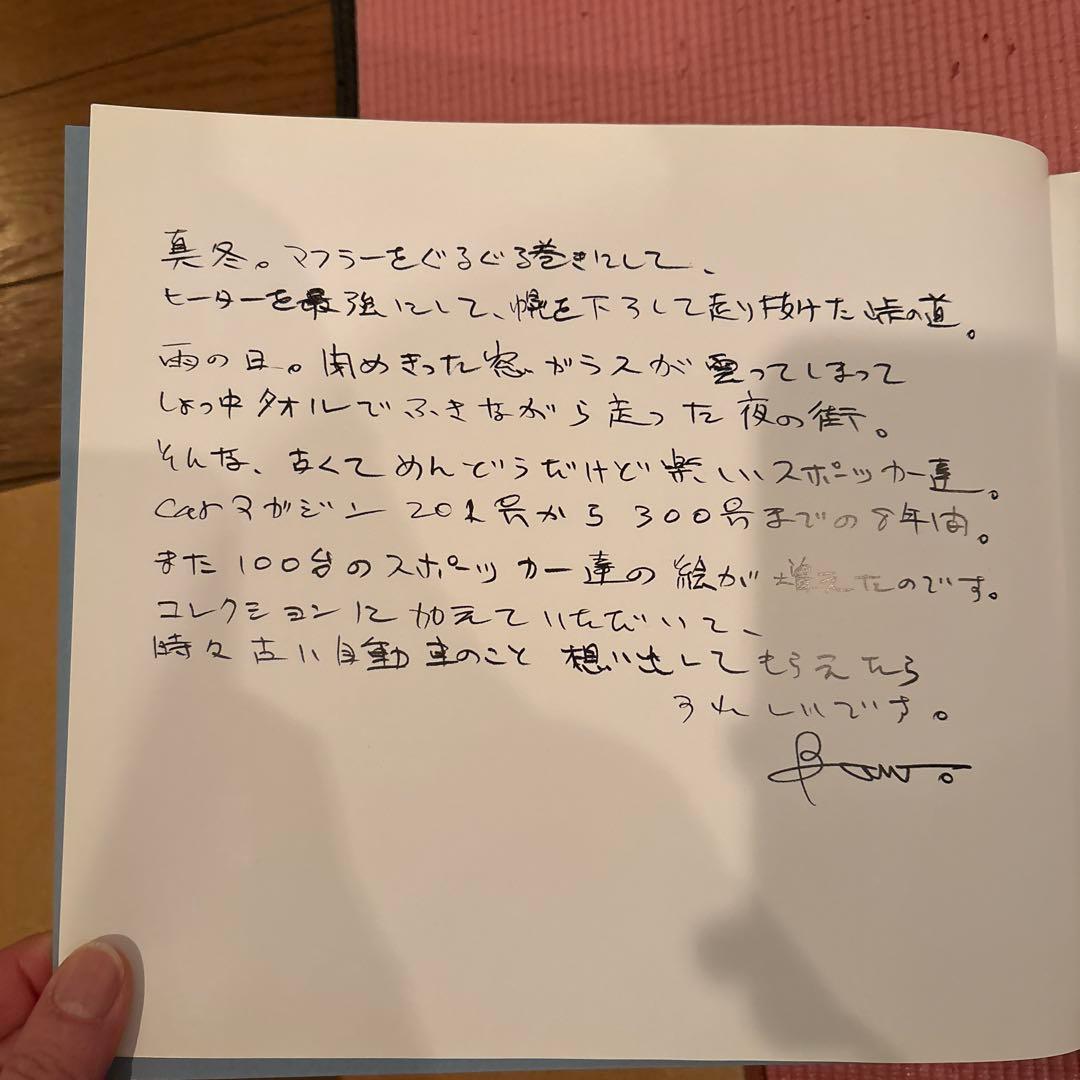 真冬。マフラーをぐるぐる巻きにして、
ヒーターを最強にして、幌を下ろして走り抜けた峠の道。
雨の日。閉めきった窓ガラスが雲ってしまって
しょっ中タオルでふきながら走った夜の街。
そんな、古くてめんどうだけど楽しいスポーツカー達。
carマガジン201号から300号までの8年間。
また100台のスポーツカー達の絵が増えたのです。
コレクションに加えていただいて、
時々古い自動車のこと想い出してもらえたら
うれしいです。